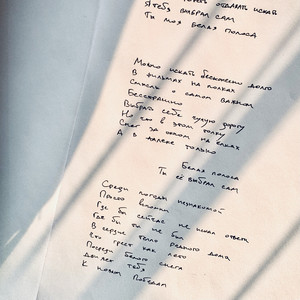 отдалять искав
Я тебя выбрал сам
Ты моя белая полоса
Можно искать бесконечно долго
В фильмах на полках
Смысл о самом важном
Бесстрашно
Выбрать себе чужую дорогу
Но что в этом толку
Снег за окном на елках
А в далеке только
Белая полоса
Ты её выбрал сам
Среди погони незнакомой
Просто вспомни
Где бы сейчас не искал ответа
Где бы ты не был
В сердце тепло родного дома
Что греет как лето
Посреди белого снега
Для тебя
К новым победам